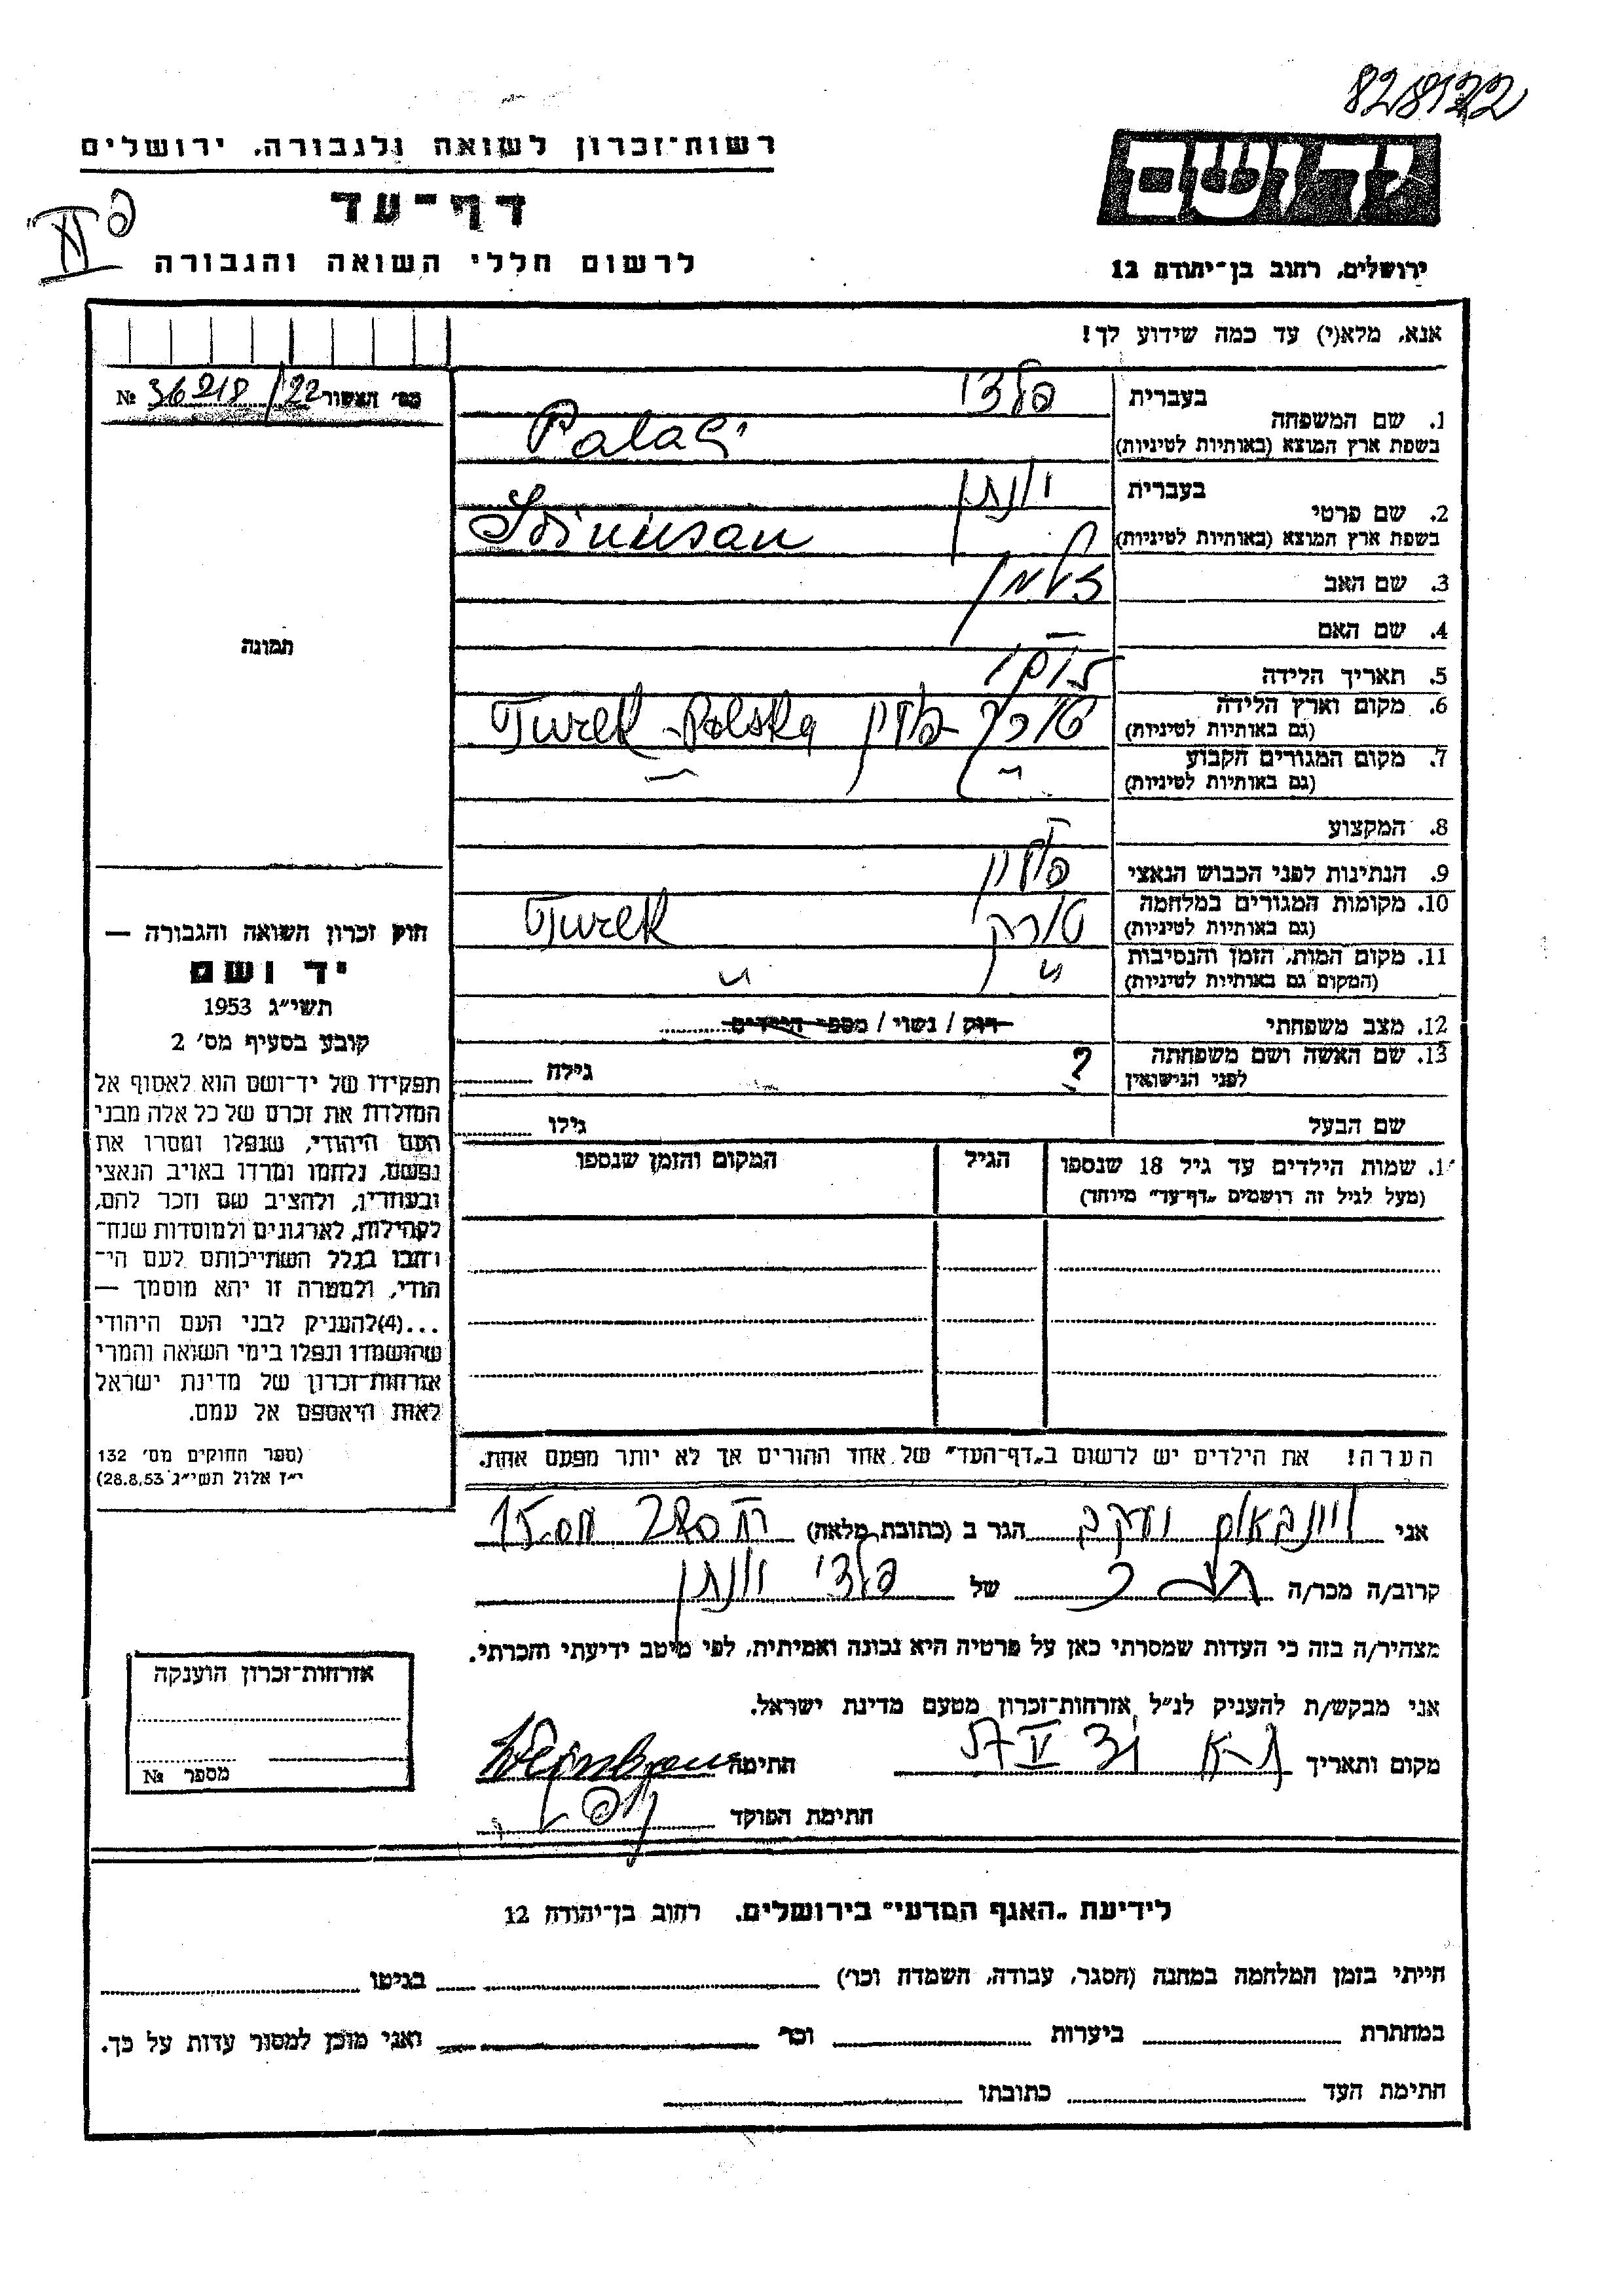 828122
יד ושם
ירושלים, רחוב בן־יהודה 12
רשות־זכרון לשואה ולגבורה, ירושלים
דף־עד
לרשום חללי השואה והגבורה
אנא, מלא(י) עד כמה שידוע לך!
מס׳ האשור 36218/22 №
תמונה
1. שם המשפחה
בעברית
בשפת ארץ המוצא (באותיות לטיניות)
2. שם פרטי
בעברית יונתן
בשפת ארץ המוצא (באותיות לטיניות)
3. שם האב זלמן
4. שם האם —
5. תאריך הלידה
6. מקום וארץ הלידה
(גם באותיות לטיניות) Turek - Polska
7. מקום המגורים הקבוע
(גם באותיות לטיניות)
8. המקצוע —
9. הנתינות לפני הכבוש הנאצי פולין
10. מקומות המגורים במלחמה
(גם באותיות לטיניות) טורק Turek
11. מקום המות, הזמן והנסיבות
(המקום גם באותיות לטיניות) " "
12. מצב משפחתי רווק / נשוי / מספר הילדים
13. שם האשה ושם משפחתה
לפני הנישואין ? גילה
שם הבעל גילו
1. שמות הילדים עד גיל 18 שנספו
(מעל לגיל זה רושמים „דף־עד״ מיוחד)
הגיל
המקום והזמן שנספו
הערה! את הילדים יש לרשום ב„דף־העד״ של אחד ההורים אך לא יותר מפעם אחת.
חוק זכרון השואה והגבורה —
יד ושם
תשי״ג 1953
קובע בסעיף מס׳ 2
תפקידו של יד־ושם הוא לאסוף אל
המולדת את זכרם של כל אלה מבני
העם היהודי, שנפלו ומסרו את
נפשם, נלחמו ומרדו באויב הנאצי
ובעוזריו, ולהציב שם וזכר להם,
לקהילות, לארגונים ולמוסדות שנח־
רבו בגלל השתייכותם לעם הי־
הודי, ולמטרה זו יהא מוסמך —
...(4)להעניק לבני העם היהודי
שהושמדו ונפלו בימי השואה והמרי
אזרחות־זכרון של מדינת ישראל
לאות היאספם אל עמם.
(ספר החוקים מס׳ 132
י״ז אלול תשי״ג 28.8.53)
אני ויינבאום יעקב הגר ב (כתובת מלאה)
קרוב/ה מכר/ה של יונתן
מצהיר/ה בזה כי העדות שמסרתי כאן על פרטיה היא נכונה ואמיתית, לפי מיטב ידיעתי והכרתי.
אני מבקש/ת להעניק לנ״ל אזרחות־זכרון מטעם מדינת ישראל.
מקום ותאריך ת-א חתימה
חתימת הפוקד
אזרחות־זכרון הוענקה
מספר №
לידיעת „האגף המדעי״ בירושלים, רחוב בן־יהודה 12
הייתי בזמן המלחמה במחנה (הסגר, עבודה, השמדה וכו׳) בגיטו
במחתרת ביערות וכו׳ ואני מוכן למסור עדות על כך.
חתימת העד כתובתו